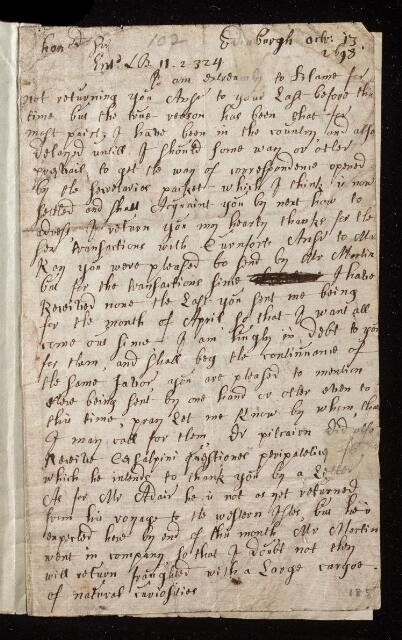 hon.d Sr 102 Edinburgh octr: 13
1698
Entd LB. 11. 2. 324.
I am extreamly to blame for
not returning you Ansr to your Last before this
time but the true reason has been that for
most part I have been in the country and also
delayd untill I should some way or other
prevail to get the way of correspondence opened
by the secretaries packet which I think is now
setled and shall Acquaint you by next how to
adress I return you my hearty thanks for the
transactions with Ansr to Mr
Ray you were pleased to send by Mr Martin
but for the transactions since I have
Received none the Last you sent me being
for the month of April so that I want all
come out since I am kingly in debt to you
for them, and shall beg the continuance of
the same favor you are pleased to mention
being sent by one hand or other even to
this time, pray Let me know by whom that
I may call for them, Dr pitcairn Did also
Receive Cesalpini questiones peripateticæ for
which he intends to thank you by a Letter
As for Mr Adair he is not as yet returned
from his voyage to the western Isles but he is
expected here by end of this month Mr Martin
went in company so that I doubt not they
will return fraughted with a Large cargoe
of natural curiosities
185